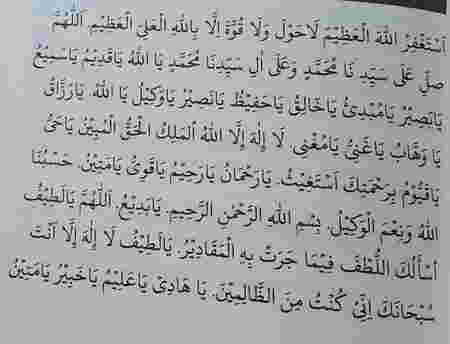 اَسْتَغْفِرُ اللهَ الْعَظِيْمَ لَاحَوْلَ وَلَا قُوَّةَ اِلَّا بِاللهِ الْعَلِيِّ الْعَظِيْمِ اَللّٰهُمَّ
صَلِّ عَلَى سَيِّدِ نَا مُحَمَّدٍ وَعَلَى اٰلِ سَيِّدِنَا مُحَمَّدٍ يَا اَللهُ يَاقَدِيْمُ يَاسَمِيْعُ
يَابَصِيْرُ يَامُبْدِئُ يَاخَالِقُ يَاحَفِيْظُ يَانَصِيْرُ يَاوَكِيْلُ يَا اَللهُ. يَارَزَّاقُ
يَا وَهَّابُ يَاغَنِيُّ يَامُغْنِى. لَا إِلٰهَ اِلَّا اللهُ الْمَلِكُ الْحَقُّ الْمُبِيْنُ يَاحَيُّ
يَاقَيُّوْمُ بِرَحْمَتِكَ اَسْتَغِيْثُ. يَارَحْمَانُ يَارَحِيْمُ يَاقَوِىُّ يَامَتِيْنُ. حَسْبُنَا
اللهُ وَنِعْمَ الْوَكِيْلُ. بِسْمِ اللهِ الرَّحْمٰنِ الرَّحِيْمِ. يَابَدِيْعُ. اَللّٰهُمَّ يَالَطِيْفُ
اَسْأَلُكَ اللُّطْفَ فِيْمَا جَرَتْ بِهِ الْمَقَادِيْرُ. يَالَطِيْفُ لَا إِلٰهَ اِلَّا اَنْتَ
سُبْحَانَكَ اِنِّىْ كُنْتُ مِنَ الظَّالِمِيْنَ. يَا هَادِىْ يَاعَلِيْمُ يَاخَبِيْرُ يَامَتِيْنُ